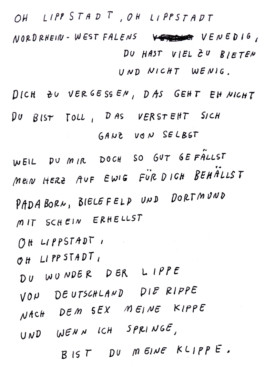 OH LIPPSTADT, OH LIPPSTADT
NORDRHEIN-WESTFALENS VENEDIG,
DU HAST VIEL ZU BIETEN
UND NICHT WENIG.
DICH ZU VERGESSEN, DAS GEHT EH NICHT
DU BIST TOLL, DAS VERSTEHT SICH
GANZ VON SELBST
WEIL DU MIR DOCH SO GUT GEFÄLLST
MEIN HERZ AUF EWIG FÜR DICH BEHÄLLST
PADABORN, BIELEFELD UND DORTMUND
MIT SCHEIN ERHELLST
OH LIPPSTADT,
OH LIPPSTADT,
DU WUNDER DER LIPPE
VON DEUTSCHLAND DIE RIPPE
NACH DEM SEX MEINE KIPPE
UND WENN ICH SPRINGE,
BIST DU MEINE KLIPPE.